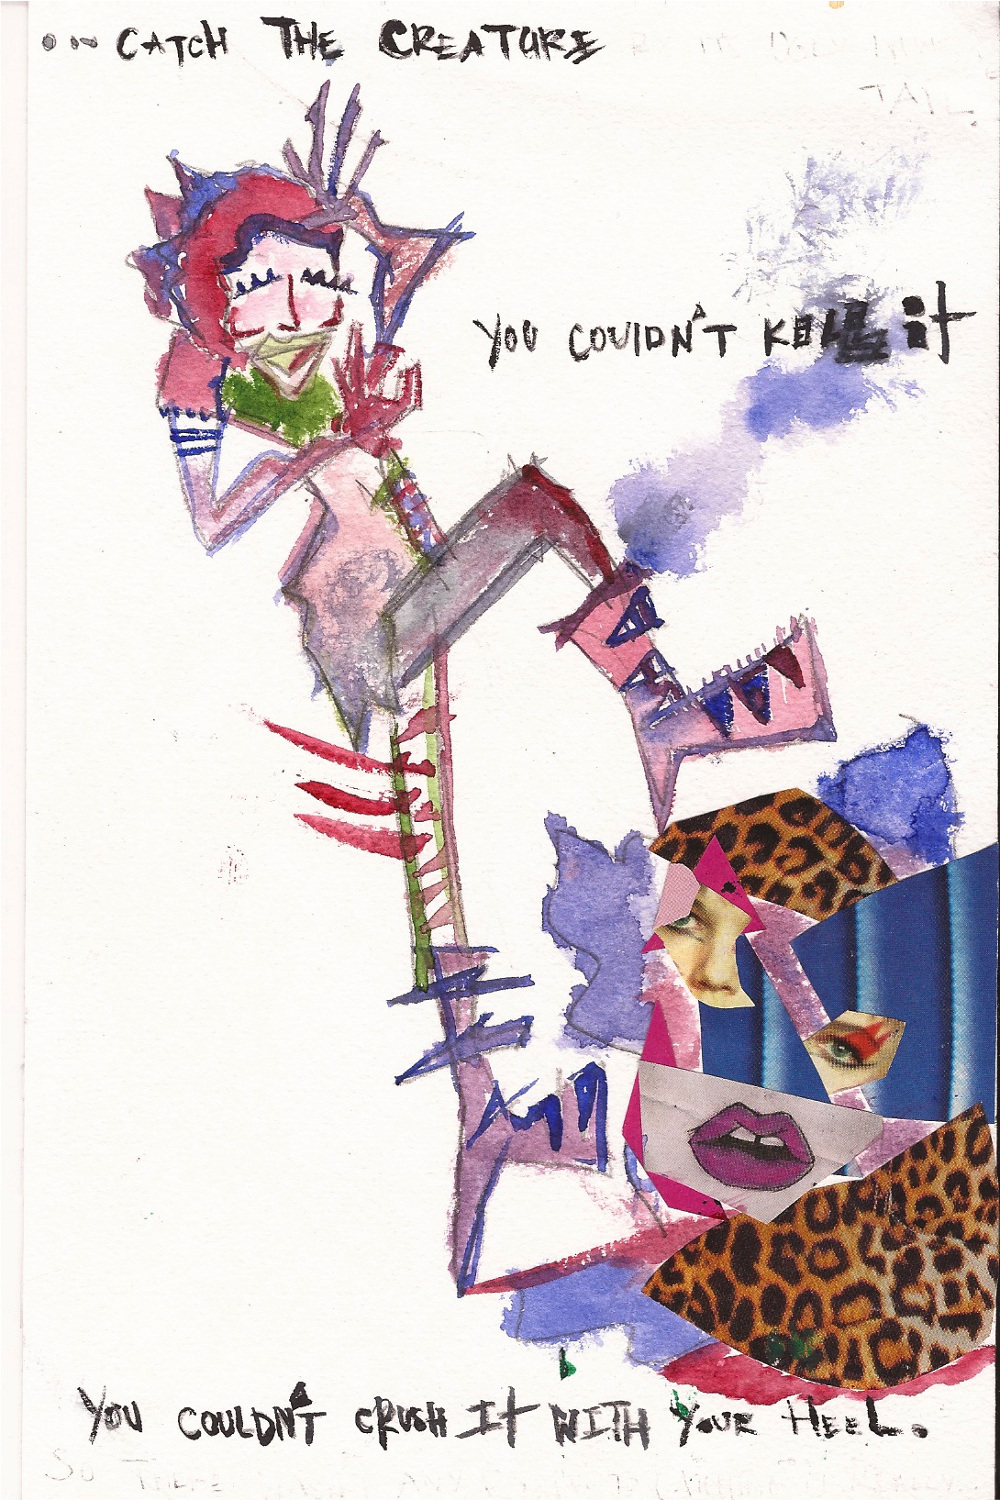 ... CATCH THE CREATURE
YOU COULDN'T KILL it
YOU COULDN'T CRUSH It WITH YOUR HEEL.